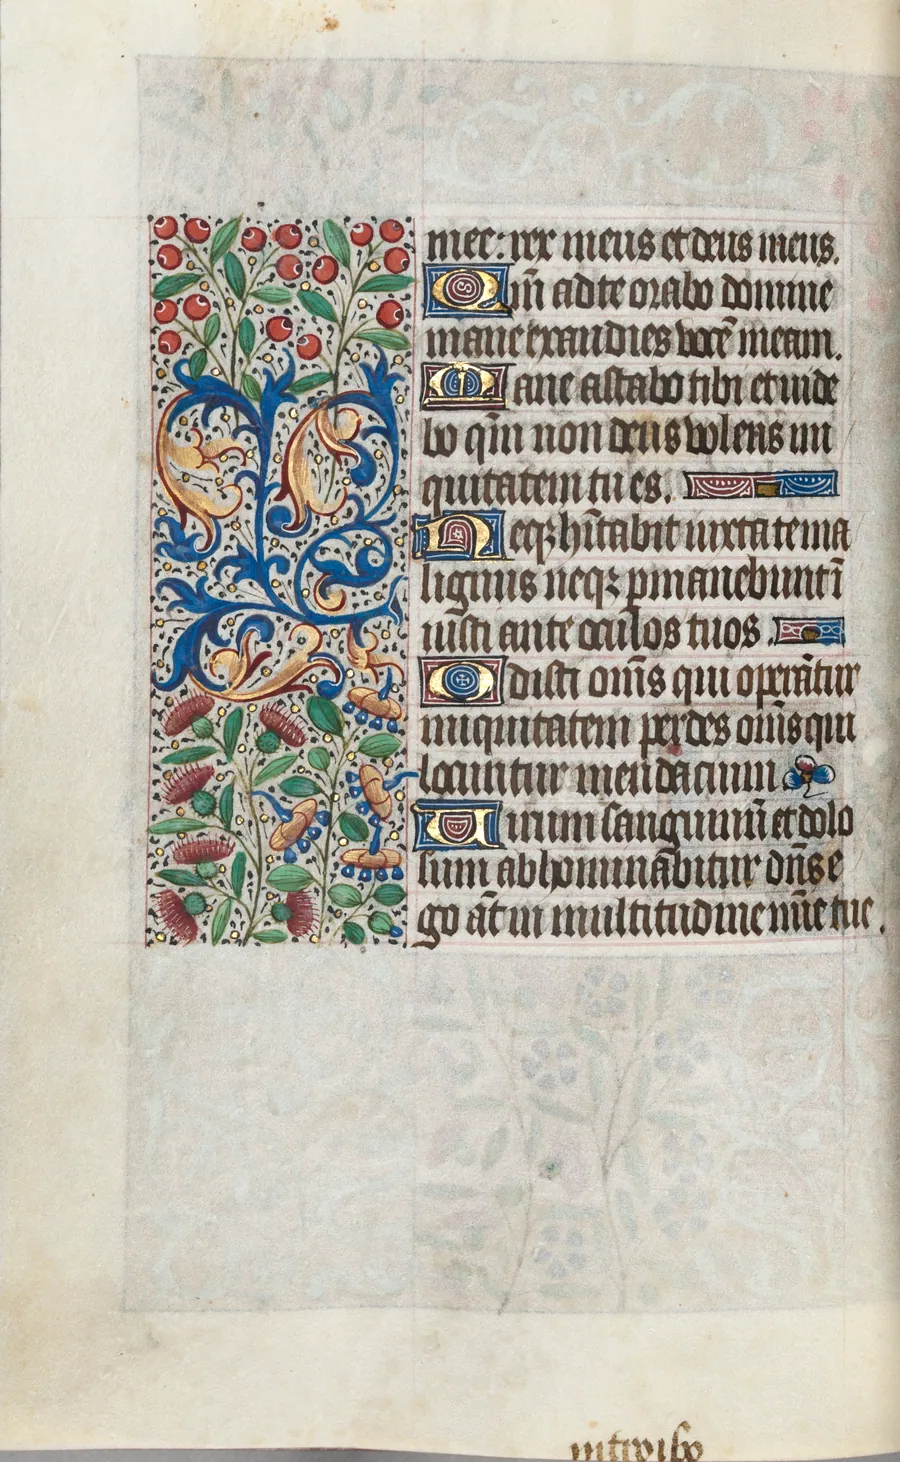 mee: rex meus et deus meus.
Qm̄ ad te orabo domine
mane exaudies vocē meam.
Mane astabo tibi et uide
bo qm̄ non deus volens ini
quitatem tu es.
Neqꝫ hītabit iuxta te ma
lignus neqꝫ ꝑmanebunt ī
iusti ante oculos tuos.
Odisti om̄s qui operātur
iniquitatem perdes om̄s qui
locuntur mendacium
Uirum sanguinū et dolo
sum abhominabitur dn̄s e
go āt in multitudine mīe tue.
introibo